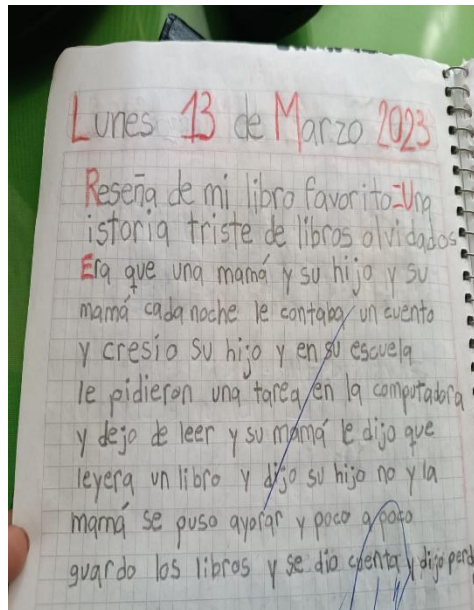 Lunes 13 de Marzo 2023
Reseña de mi libro favorito=Una
istoria triste de libros olvidados
Era que una mamá y su hijo y su
mamá cada noche le contaba un cuento
y cresio su hijo y en su escuela
le pidieron una tarea en la computadora
y dejo de leer y su mamá le dijo que
leyera un libro y dijo su hijo no y la
mamá se puso ayorar y poco a poco
guardo los libros y se dio cuenta y dijo perd